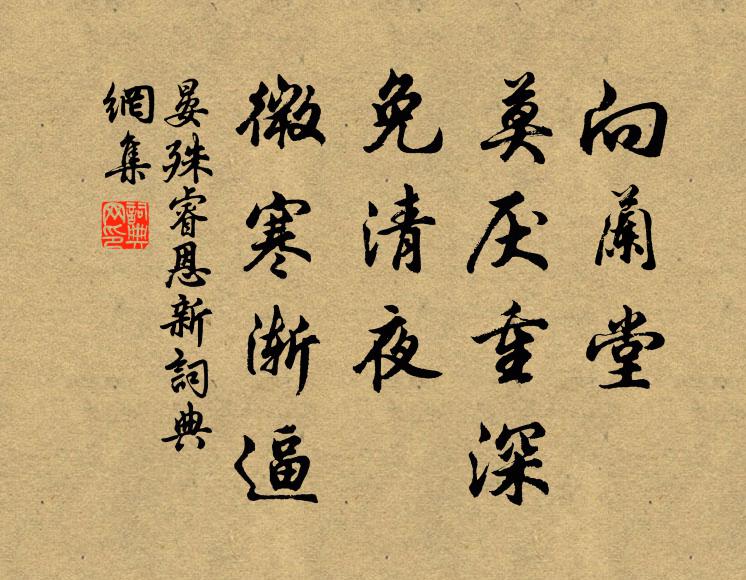 向蘭堂
莫厌重深
免清夜
微寒渐逼
晏殊睿恩新詞典
網集
詞典网印